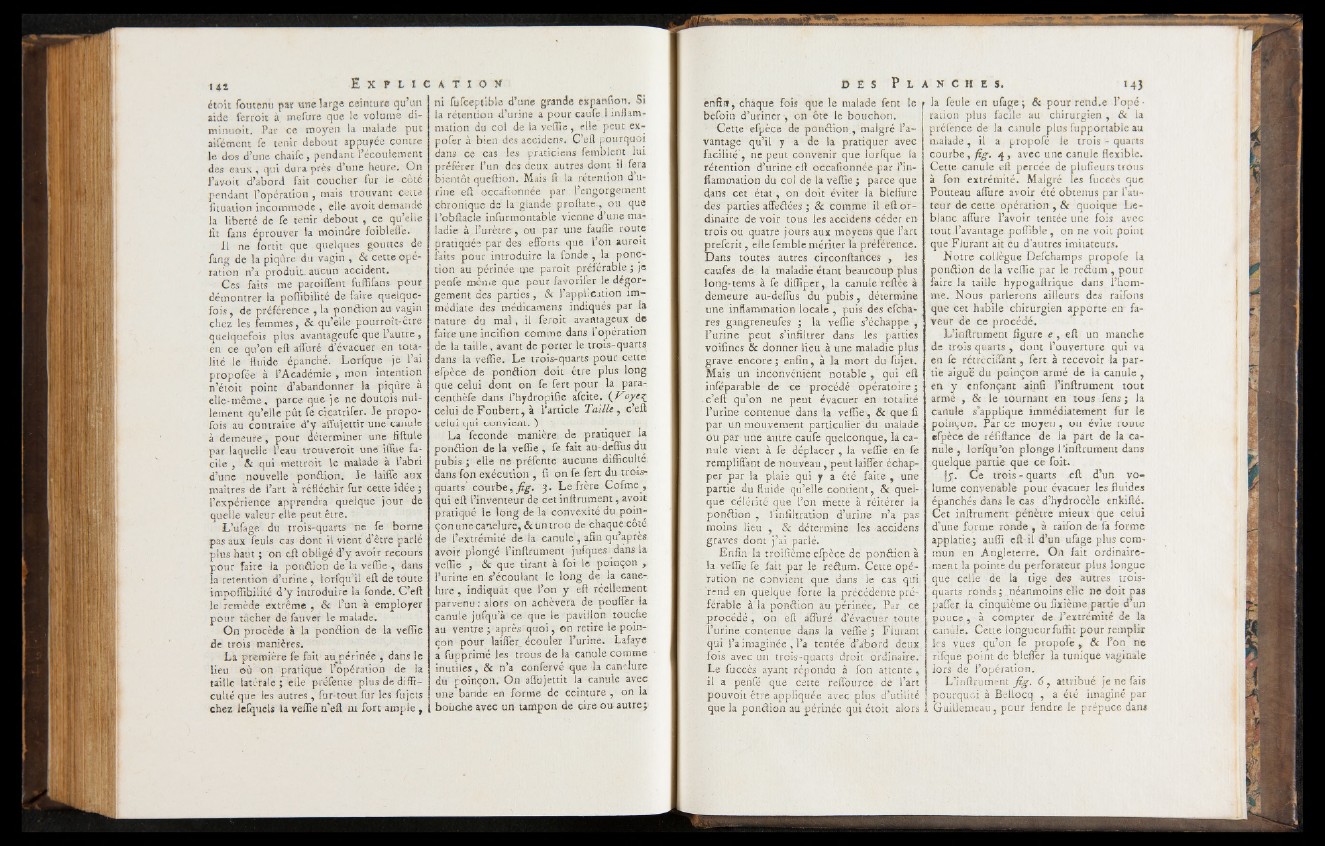 142 EXPLICATION
étoit ſoutenu par une large ceinture qu'un
aide ſerroit à meſure que le volume di-
minuoit. Par ce moyen la malade put
aiſément ſe tenir debout appuyée contre
le dos d'une chaiſe, pendant l'écoulement
des eaux, qui dura près d'une heure. On
l'avoit d'abord fait coucher ſur le côté
pendant l'opération, mais trouvant cette
ſituation incommode, elle avoit demandé
la liberté de ſe tenir debout, ce qu'elle
fit ſans éprouver la moindre foibleſſe.
Il ne ſortit que quelques gouttes de
ſang de la piqûre du vagin, & cette opé-
ration n'a produit aucun accident.
Ces faits me paroiſſent ſuffiſans pour
démontrer la poſſibilité de faire quelque-
fois, de préférence, la ponction au vagin
chez les femmes, & qu'elle pourroit-être
quelquefois plus avantageuſe que l'autre,
en ce qu'on eſt aſſuré d'évacuer en tota-
lité le fluide épanché. Lorſque je l'ai
propoſée à l'Académie, mon intention
n'étoit point d'abandonner la piqûre à
elle-même, parce que je ne doutois nul-
lement qu'elle pût ſe cicatriſer. Je propo-
ſois au contraire d'y aſſujettir une canule
à demeure, pour déterminer une fiſtule
par laquelle l'eau trouveroit une iſſue fa-
cile, & qui mettroit le malade à l'abri
d'une nouvelle ponction. Je laiſſe aux
maîtres de l'art à réfléchir ſur cette idée;
l'expérience apprendra quelque jour de
quelle valeur elle peut être.
L'uſage du trois-quarts ne ſe borne
pas aux ſeuls cas dont il vient d'être parlé
plus haut; on eſt obligé d'y avoir recours
pour faire la ponction de la veſſie, dans
la retention d'urine, lorſqu'il eſt de toute
impoſſibilité d'y introduire la ſonde. C'eſt
le remède extrême, & l'un à employer
pour tâcher de ſauver le malade.
On procède à la ponction de la veſſie
de trois manières.
La première ſe fait au périnée, dans le
lieu où on pratique l'opération de la
taille latérale; elle préſente plus de diffi-
culté que les autres, ſur-tout ſur les ſujets
chez leſquels la veſſie n'eſt ni fort ample,
ni ſuſceptible d'une grande expanſion. Si
la rétention d'urine a pour cauſe l'inflam-
mation du col de la veſſie, elle peut ex-
poſer à bien des accidens. C'eſt pourquoi
dans ce cas les praticiens ſemblent lui
préférer l'un des deux autres dont il ſera
bientôt queſtion. Mais ſi la rétention d'u-
rine eſt occaſionnée par l'engorgement
chronique de la glande proſtate, ou que
l'obſtacle inſurmontable vienne d'une ma-
ladie à l'urètre, ou par une fauſſe route
pratiquée par des efforts que l'on auroit
faits pour introduire la ſonde, la ponc-
tion au périnée me paroît préférable; je
penſe même que pour favoriſer le dégor-
gement des parties, & l'application im-
médiate des médicamens indiqués par la
nature du mal, il ſeroit avantageux de
faire une inciſion comme dans l'opération
de la taille, avant de porter le trois-quarts
dans la veſſie. Le trois-quarts pour cette
eſpèce de ponction doit être plus long
que celui dont on ſe ſert pour la para-
centhèſe dans l'hydropiſie aſcite. (Voyez
celui de Foubert, à l'article Taille, c'eſt
celui qui convient.)
La ſeconde manière de pratiquer la
ponction de la veſſie, ſe fait au-deſſus du
pubis; elle ne préſente aucune difficulté
dans ſon exécution, ſi on ſe ſert du trois-
quarts courbe, fig. 3. Le frère Coſme,
qui eſt l'inventeur de cet inſtrument, avoit
pratiqué le long de la convexité du poin-
çon une canelure, & un trou de chaque côté
de l'extrémité de la canule, afin qu'après
avoir plongé l'inſtrument juſques dans la
veſſie, & que tirant à ſoi le poinçon,
l'urine en s'écoulant le long de la cane-
lure, indiquât que l'on y eſt réellement
parvenu: alors on achevera de pouſſer la
canule juſqu'à ce que le pavillon touche
au ventre; après quoi, on retire le poin-
çon pour laiſſer écouler l'urine. Lafaye
a ſupprimé les trous de la canule comme
inutiles, & n'a conſervé que la canelure
du poinçon. On aſſujettit la canule avec
une bande en forme de ceinture, on la
bouche avec un tampon de cire ou autre;
DES PLANCHES. 143
enfin, chaque fois que le malade ſent le
beſoin d'uriner, on ôte le bouchon.
Cette eſpèce de ponction, malgré l'a-
vantage qu'il y a de la pratiquer avec
facilité, ne peut convenir que lorſque la
rétention d'urine eſt occaſionnée par l'in-
flammation du col de la veſſie; parce que
dans cet état, on doit éviter la bleſſure
des parties affectées; & comme il eſt or-
dinaire de voir tous les accidens céder en
trois ou quatre jours aux moyens que l'art
preſcrit, elle ſemble mériter la préférence.
Dans toutes autres circonſtances, les
cauſes de la maladie étant beaucoup plus
long-tems à ſe diſſiper, la canule reſtée à
demeure au-deſſus du pubis, détermine
une inflammation locale, puis des eſcha-
res gangreneuſes; la veſſie s'échappe,
l'urine peut s'infiltrer dans les parties
voiſines & donner lieu à une maladie plus
grave encore; enfin, à la mort du ſujet.
Mais un inconvénient notable, qui eſt
inſéparable de ce procédé opératoire;
c'eſt qu'on ne peut évacuer en totalité
l'urine contenue dans la veſſie, & que ſi
par un mouvement particulier du malade
ou par une autre cauſe quelconque, la ca-
nule vient à ſe déplacer, la veſſie en ſe
rempliſſant de nouveau, peut laiſſer échap-
per par la plaie qui y a été faite, une
partie du fluide qu'elle contient, & quel-
que célérité que l'on mette à réitérer la
ponction, l'infiltration d'urine n'a pas
moins lieu, & détermine les accidens
graves dont j'ai parlé.
Enfin la troiſième eſpèce de ponction à
la veſſie ſe fait par le rectum. Cette opé-
ration ne convient que dans le cas qui
rend en quelque ſorte la précédente pré-
férable à la ponction au périnée. Par ce
procédé, on eſt aſſuré d'évacuer toute
l'urine contenue dans la veſſie; Flurant
qui l'a imaginée, l'a tentée d'abord deux
fois avec un trois-quarts droit ordinaire.
Le ſuccès ayant répondu à ſon attente,
il a penſé que cette reſſource de l'art
pouvoit être appliquée avec plus d'utilité
que la ponction au périnée qui étoit alors
la ſeule en uſage; & pour rendre l'opé-
ration plus facile au chirurgien, & la
préſence de la canule plus ſupportable au
malade, il a propoſé le trois-quarts
courbe, fig. 4, avec une canule flexible.
Cette canule eſt percée de pluſieurs trous
à ſon extrémité. Malgré les ſuccès que
Pouteau aſſure avoir été obtenus par l'au-
teur de cette opération, & quoique Le-
blanc aſſure l'avoir tentée une fois avec
tout l'avantage poſſible, on ne voit point
que Flurant ait eu d'autres imitateurs.
Notre collègue Deſchamps propoſe la
ponction de la veſſie par le rectum, pour
faire la taille hypogaſtrique dans l'hom-
me. Nous parlerons ailleurs des raiſons
que cet habile chirurgien apporte en fa-
veur de ce procédé.
L'inſtrument figure e, eſt un manche
de trois quarts, dont l'ouverture qui va
en ſe rétréciſſant, ſert à recevoir la par-
tie aiguë du poinçon armé de la canule,
en y enfonçant ainſi l'inſtrument tout
armé, & le tournant en tous ſens; la
canule s'applique immédiatement ſur le
poinçon. Par ce moyen, on évite toute
eſpèce de réſiſtance de la part de la ca-
nule, lorſqu'on plonge l'inſtrument dans
quelque partie que ce ſoit.
5. Ce trois-quarts eſt d'un vo-
lume convenable pour évacuer les fluides
épanchés dans le cas d'hydrocèle enkiſté.
Cet inſtrument pénètre mieux que celui
d'une forme ronde, à raiſon de ſa forme
applatie; auſſi eſt-il d'un uſage plus com-
mun en Angleterre. On fait ordinaire-
ment la pointe du perforateur plus longue
que celle de la tige des autres trois-
quarts ronds; néanmoins elle ne doit pas
paſſer la cinquième ou ſixième partie d'un
pouce, à compter de l'extrémité de la
canule. Cette longueur ſuffit pour remplir
les vues qu'on ſe propoſe, & l'on ne
riſque point de bleſſer la tunique vaginale
lors de l'opération.
L'inſtrument fig. 6, attribué je ne ſais
pourquoi à Bellocq, a été imaginé par
Guillemeau, pour fendre le prépuce dans